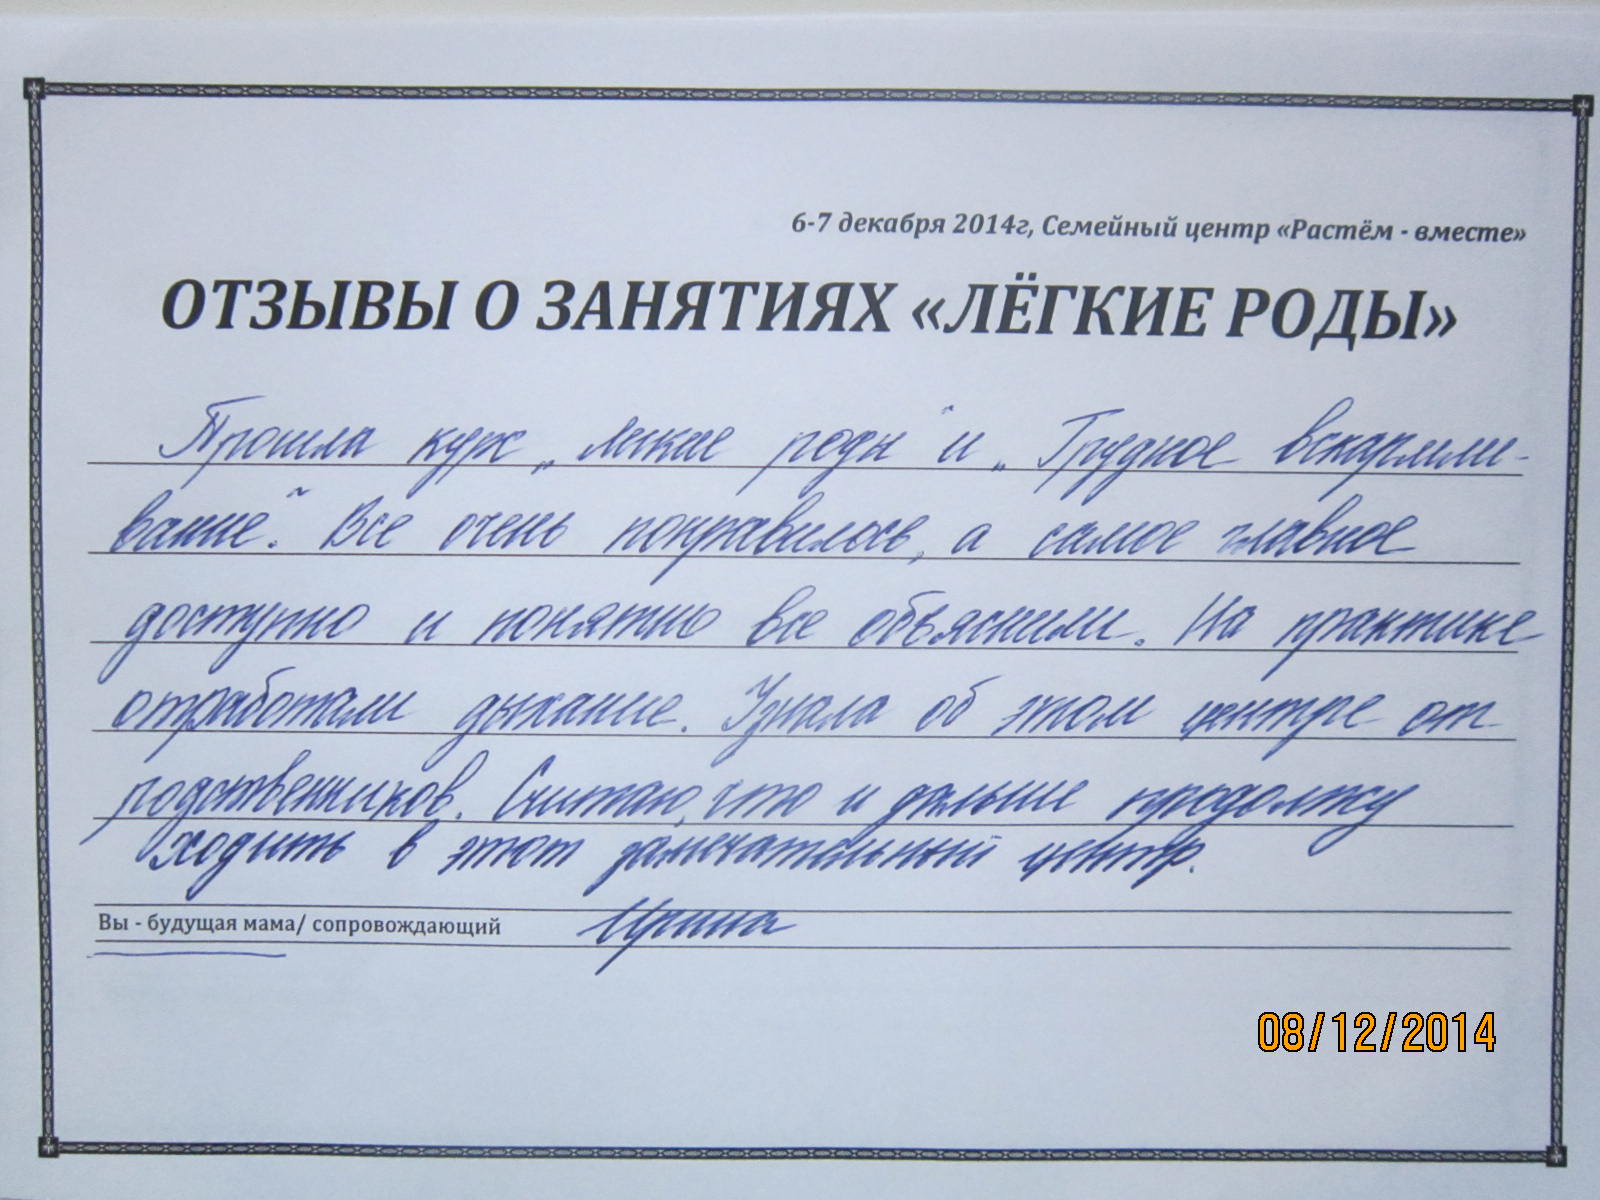 6-7 декабря 2014г, Семейный центр «Растём - вместе»
ОТЗЫВЫ О ЗАНЯТИЯХ «ЛЁГКИЕ РОДЫ»
Прошла курс „Легкие роды“ и „Грудное вскармли-
вание“. Все очень понравилось, а самое главное
доступно и понятно все объяснили. На практике
отработали дыхание. Узнала об этом центре от
родственников. Считаю, что и дальше продолжу
ходить в этот замечательный центр.
Вы - будущая мама/ сопровождающий Ирина
08/12/2014